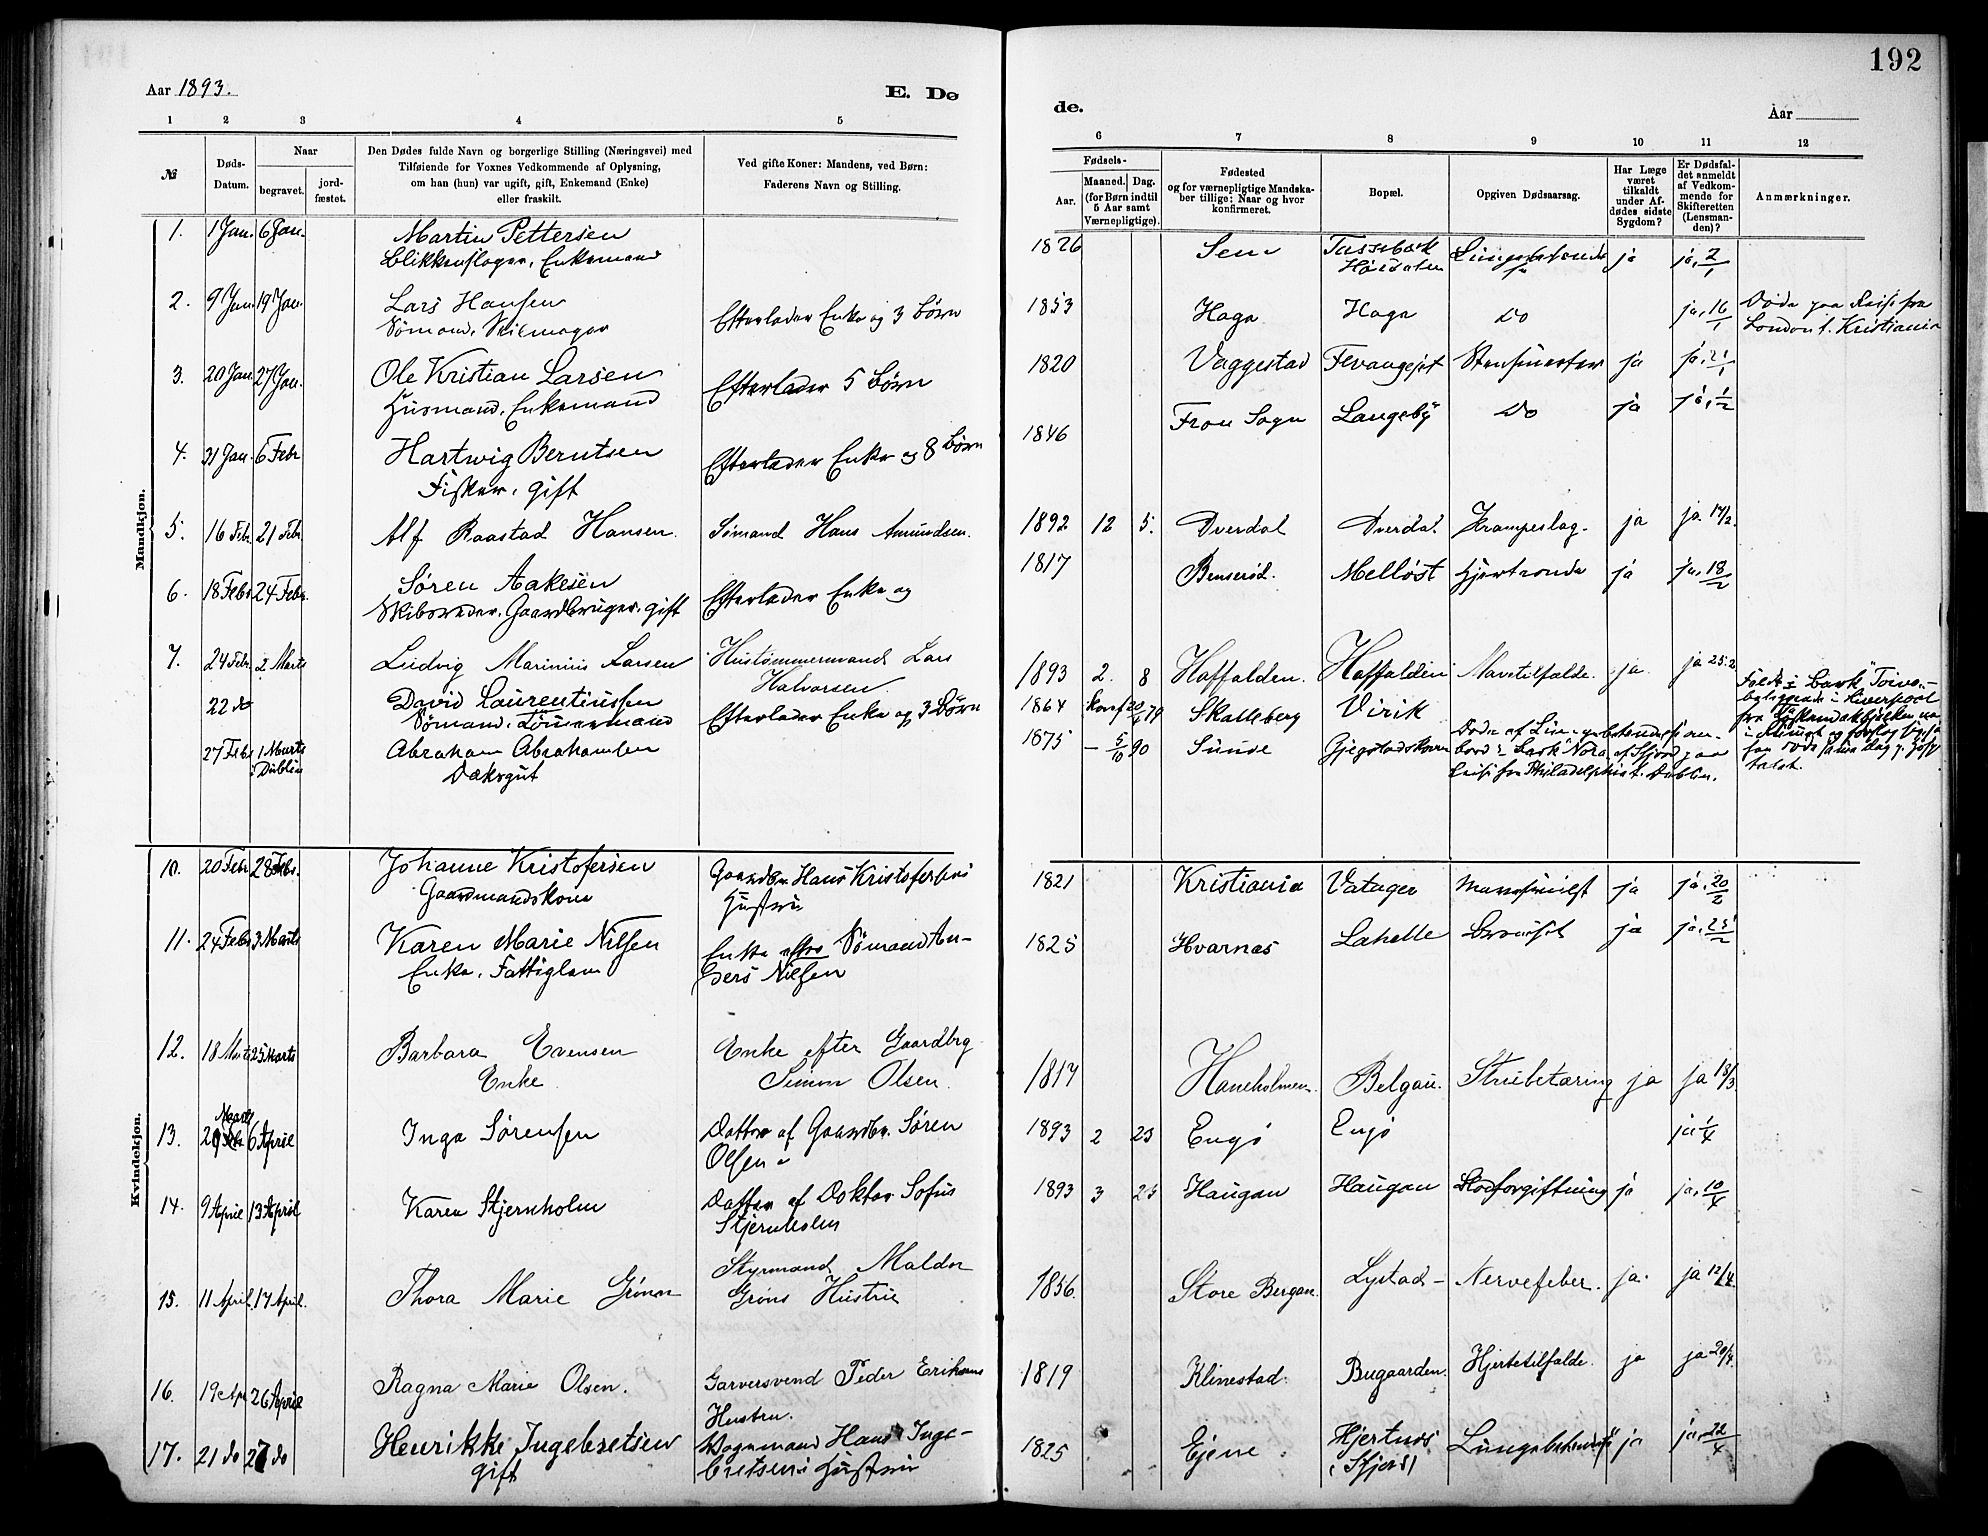 192
Aar 1893.
E. Dø
de.
Aar
1 2 3 4 5
6 7 8 9 10 11 12
№
Døds-
Datum.
Naar
begravet.
jord-
fæstet.
Den Dødes fulde Navn og borgerlige Stilling (Næringsvei) med
Tilføiende for Voxnes Vedkommende af Oplysning,
om han (hun) var ugift, gift, Enkemand (Enke)
eller fraskilt.
Ved gifte Koner: Mandens, ved Børn:
Faderens Navn og Stilling.
Fødsels-
Aar.
Maaned.
Dag.
(for Børn indtil
5 Aar samt
Værnepligtige).
Fødested
og for værnepligtige Mandska-
ber tillige: Naar og hvor
konfirmeret.
Bopæl.
Opgiven Dødsaarsag.
Har Læge
været
tilkaldt
under Af-
dødes sidste
Sygdom?
Er Dødsfal-
det anmeldt
af Vedkom-
mende for
Skifteretten
(Lensman-
den)?
Anmærkninger.
Mandkjøn.
1. 1 Jan. 6 Jan. Martin Pettersen
Blikkenslager, Enkemand
1826 Sem ja ja, 2/1
2. 9 Jan. 19 Jan. Lars Hansen
Sømand, Seilmager
Efterlader Enke og 3 Børn
1853 Haga Haga Do ja, 16/1
Døde paa Reise fra
London t. Kristiania
3. 20 Jan. 27 Jan. Ole Kristian Larsen
Husmand, Enkemand
Efterlader 5 Børn
1820 Vaggestad ja ja, 21/1
4. 31 Jan. 6 Febr Hartwig Berntsen
Fisker, gift
Efterlader Enke og 8 Børn
1846 Fron Sogn Langeby Do ja ja, 1/2
5. 16 Febr. 21 Febr Alf Raastad Hansen. Sømand Hans Amundsen.
1892 12 5. Dverdal Dverdal. Krampeslag. ja ja. 17/2.
6. 18 Febr 24 Febr. Søren Aakesen
Skibsreder, Gaardbruger, gift
Efterlader Enke og
1817 Benserød. Melløst Hjerteonde ja ja, 18/2
7. 24 Febr. 2 Marts Ludvig Marinius Larsen Hustømmermand Lars
Halvorsen.
1893 2. 8 Haffalden. Haffalden Mavetilfælde. ja. ja 25.2
22 do David Laurentiussen
Sømand, Tømmermand
Efterlader Enke og 3 Børn
1864 Konf 79 Skalleberg Virik
27 Febr 1 Marts
i Dublin
Abraham Abrahamsen
Dæksgut
1875 – 5/10 90 Sunde
Døde af Lungebetændelse om-
bord i Bark "Nora" af Sfjord paa
Reise fra Philadelphia t. Dublin.
Kvindekjøn.
10. 20 Febr 28 Febr. Johanne Kristofersen
Gaardmandskone
Gaardbr. Hans Kristofersens
Hustru
1821 Kristiania Vatager ja ja, 20/2
11. 24 Febr 3 Marts Karen Marie Nilsen
Enke, Fattiglem
Enke efter Sømand An-
ders Nilsen
1825 Hvarnæs Lahelle ja ja, 25/2
12. 18 Marts 25 Marts Barbara Evensen
Enke
Enke efter Gaardbrg.
Simon Olsen.
1817 Haneholmen. Belgau. Strubetæring ja ja 18/3
13. 29 Marts 6 April Inga Sørensen
Datter af Gaardbr. Søren
Olsen
1893 2 23 Engø Engø ja 1/4
14. 9 April 13 April Karen Stjernholm
Datter af Doktor Sofus
Stjernholm
1893 3 23 Haugan Haugan Blodforgiftning ja ja, 10/4
15. 11 April. 17 April. Thora Marie Grønn
Styrmand Maldor
Grøns Hustru
1856. Store Bergan. Lystad – Nervefeber. ja. ja 12/4
16. 19 Apr 26 April Ragna Marie Olsen.
Garversvend Peder Eriksens
Hustru.
1819 Klinestad. Bugaarden. Hjertetilfælde. ja ja 20/4.
17. 21 do 27 do Henrikke Ingebretsen
gift
Vognmand Hans Inge-
bretsens Hustru
1825 Ejene Hjertnæs
(Sfjord)
Lungebetændelse ja ja, 22/4